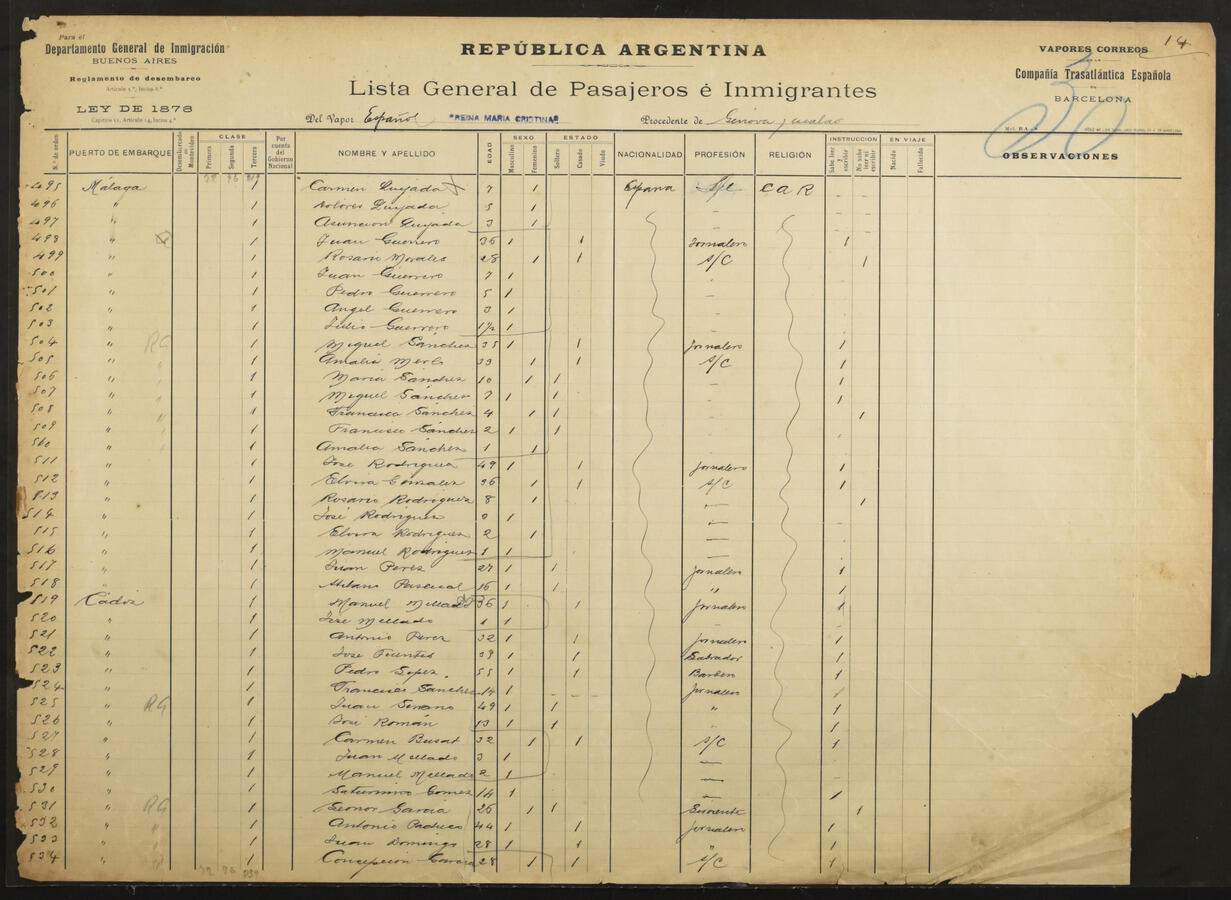 Para el
Departamento General de Inmigración
BUENOS AIRES
Reglamento de desembarco
Artículo 1.°, Inciso 8.°
LEY DE 1876
Capítulo 11, Artículo 14, Inciso 4.°
REPÚBLICA ARGENTINA
Lista General de Pasajeros é Inmigrantes
Del Vapor Español "REINA MARIA CRISTINA" Procedente de Génova y escalas
VAPORES CORREOS
DE LA
Compañía Trasatlántica Española
DE
BARCELONA
14
30
N.° de orden PUERTO DE EMBARQUE Desembarcado en Montevideo CLASE Primera Segunda Tercera Por cuenta del Gobierno Nacional NOMBRE Y APELLIDO EDAD SEXO Masculino Femenino ESTADO Soltero Casado Viudo NACIONALIDAD PROFESIÓN RELIGIÓN INSTRUCCION Sabe leer y escribir No sabe leer ni escribir EN VIAJE Nacido Fallecido OBSERVACIONES
495 Málaga / Carmen Quijada 7 / España S/C C A R
496 " / Dolores Quijada 5 /
497 " / Asuncion Quijada 3 /
498 " / Juan Guerrero 36 / / Jornalero /
499 " / Rosario Morales 28 / / S/C /
500 " / Juan Guerrero 7 /
501 " / Pedro Guerrero 5 /
502 " / Angel Guerrero 3 /
503 " / Julio Guerrero 1/2 /
504 " RG / Miguel Sánchez 35 / / Jornalero /
505 " / Amalia Merlo 33 / / S/C /
506 " / Maria Sánchez 10 / / /
507 " / Miguel Sánchez 7 / / /
508 " / Francisca Sánchez 4 / / /
509 " / Francisco Sánchez 2 / /
510 " / Amalia Sánchez 1 /
511 " / José Rodriguez 49 / / Jornalero /
512 " / Elvira Gonzalez 36 / / S/C /
513 " / Rosario Rodriguez 8 / /
514 " / José Rodriguez /
515 " / Elvira Rodriguez 2 /
516 " / Manuel Rodriguez 1 /
517 " / Juan Perez 27 / / Jornalero /
518 " / Pascual 16 / / " /
519 Cádiz / Manuel Mellado 36 / / Jornalero /
520 " / José Mellado 1 /
521 " / Antonio Perez 32 / / Jornalero /
522 " / José Fuentes 39 / / Labrador /
523 " / Pedro Lopez 55 / / Barbero /
524 " / Francisco Sanchez 14 / Jornalero /
525 " RG / Juan Serano 49 / / " /
526 " / José Román 13 / / /
527 " / Carmen Busat 32 / / S/C /
528 " / Juan Mellado 3 /
529 " / Manuel Mellado 2 /
530 " / Saturnino Gomez 14 / /
531 " RG / Leonor Garcia 26 / / Sirviente /
532 " / Antonio Pacheco 44 / / Jornalero /
533 " / Juan Domingo 28 / / " /
534 " / Concepcion 28 / / S/C /